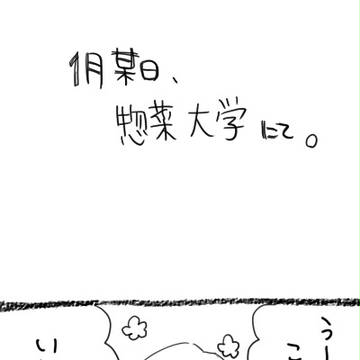 1月某日、
惣菜大学にて。
うー
こ
い